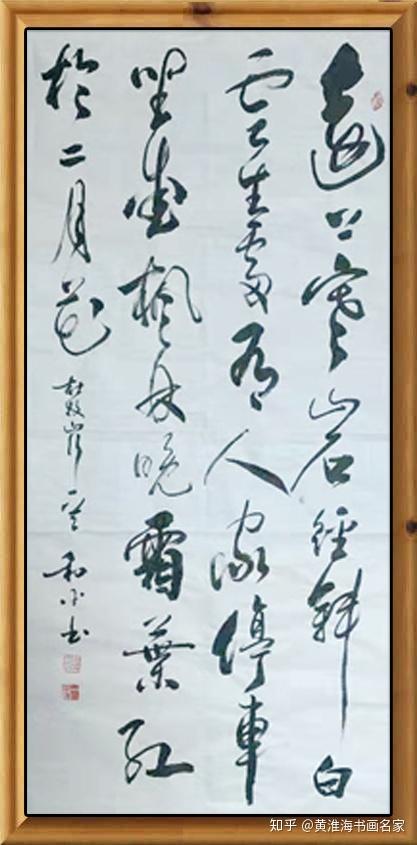 遠上寒山石經斜白
雲生處有人家停車
坐愛楓林晚霜葉紅
於二月花
杜牧山行 和平书
知乎 @黄淮海书画名家